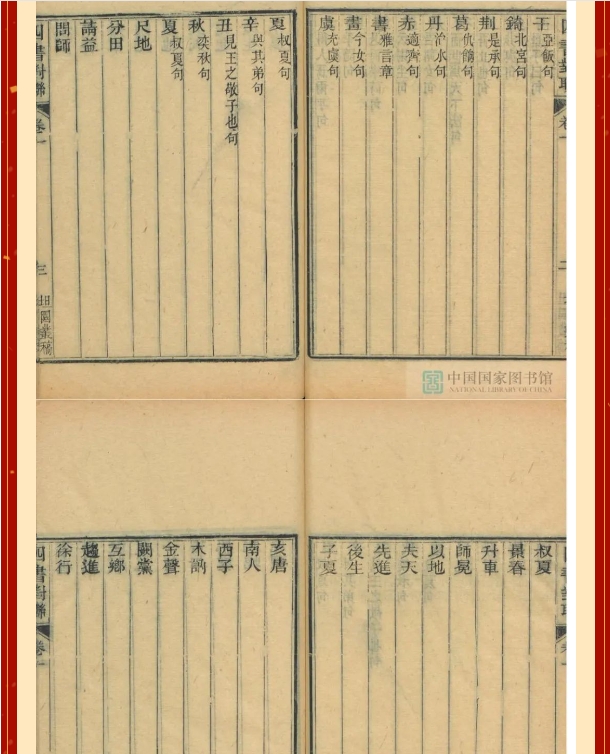 四書對聯 卷一 二
干 亞飯句
錡 北宮句
荆 是承句
葛 仇餉句
丹 治水句
赤 適齊句
書 雅言章
畫 今女句
虞 虞句
夏 叔夏句
辛 與其弟句
丑 見王之敬子也句
秋 奕秋句
夏 叔夏句
尺地
分田
請益
問師
四書對聯 卷一 三
中国国家图书馆
NATIONAL LIBRARY OF CHINA
叔夏
景春
升車
師冕
以地
夫天
先進
後生
子夏
亥唐
南人
西子
木訥
金聲
闕黨
互鄉
趨進
徐行
四書對聯 卷一